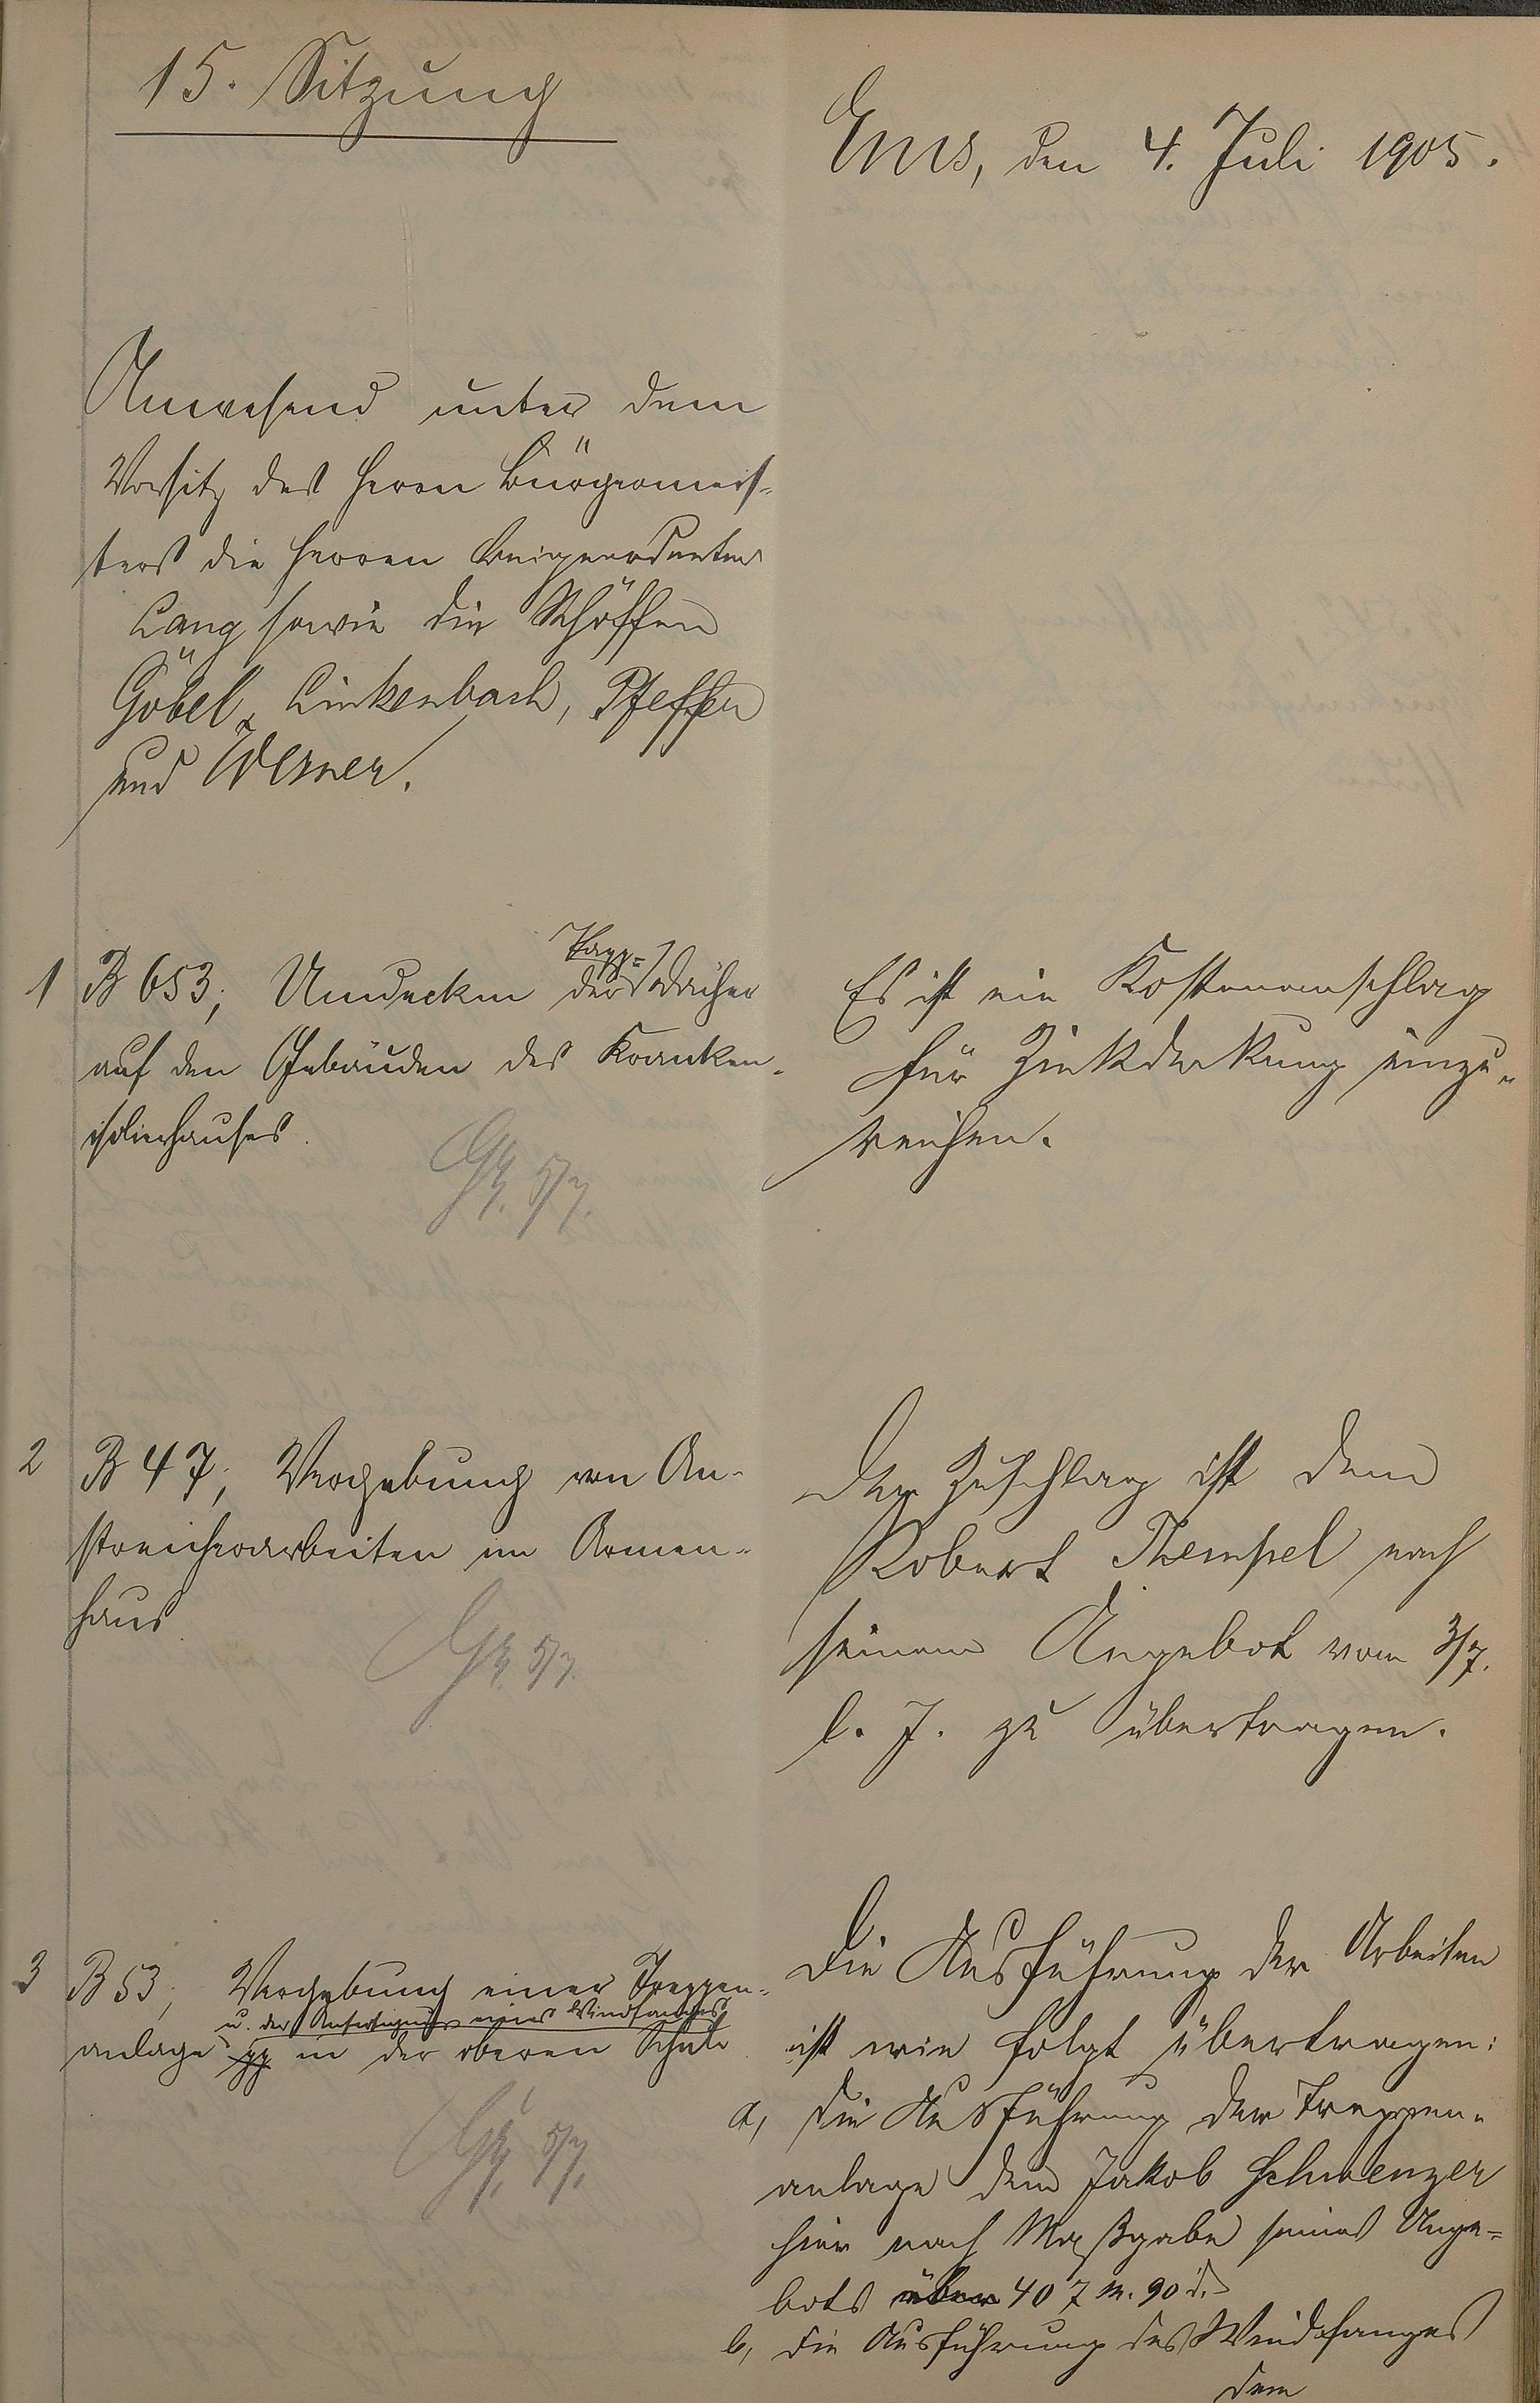 15. Sitzung
Ems, den 4. Juli 1905.
Anwesend unter dem
Vorsitz des Herrn Bürgermeis-
ters die Herren Beigeordneter
Lang sowie die Schöffen
Göbel, Linkenbach, Pfeffer
und Werner.
1 B 653, Umdecken der Papp-
dächer
auf den Gebäuden des Kranken-
isolierhauses.
Es ist ein Kostenanschlag
für Zinkdeckung einzu-
reichen.
2 B 47, Vergebung von An-
streicherarbeiten im Armen-
haus
Der Zuschlag ist dem
Robert Thempel nach
seinem Angebot vom 3/7.
l. J. zu übertragen.
3 B 53, Vergebung einer Treppen-
u. der Anfertigung eines Windfanges
anlage pp in der oberen Schule
Die Ausführung der Arbeiten
ist wie folgt übertragen:
a, die Ausführung der Treppen-
anlage dem Jakob Schwenzer
hier nach Maßgabe seines Ange-
bots über 407 M. 90 d.
b, die Ausführung des Windfanges
dem